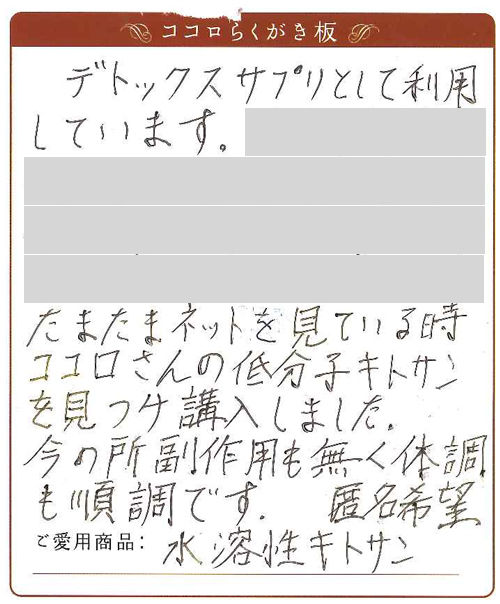 ココロらくがき板
デトックスサプリとして利用
しています。
たまたまネットを見ている時
ココロさんの低分子キトサン
を見つけ講入しました。
今の所副作用も無く体調
も順調です。 匿名希望
ご愛用商品: 水溶性キトサン